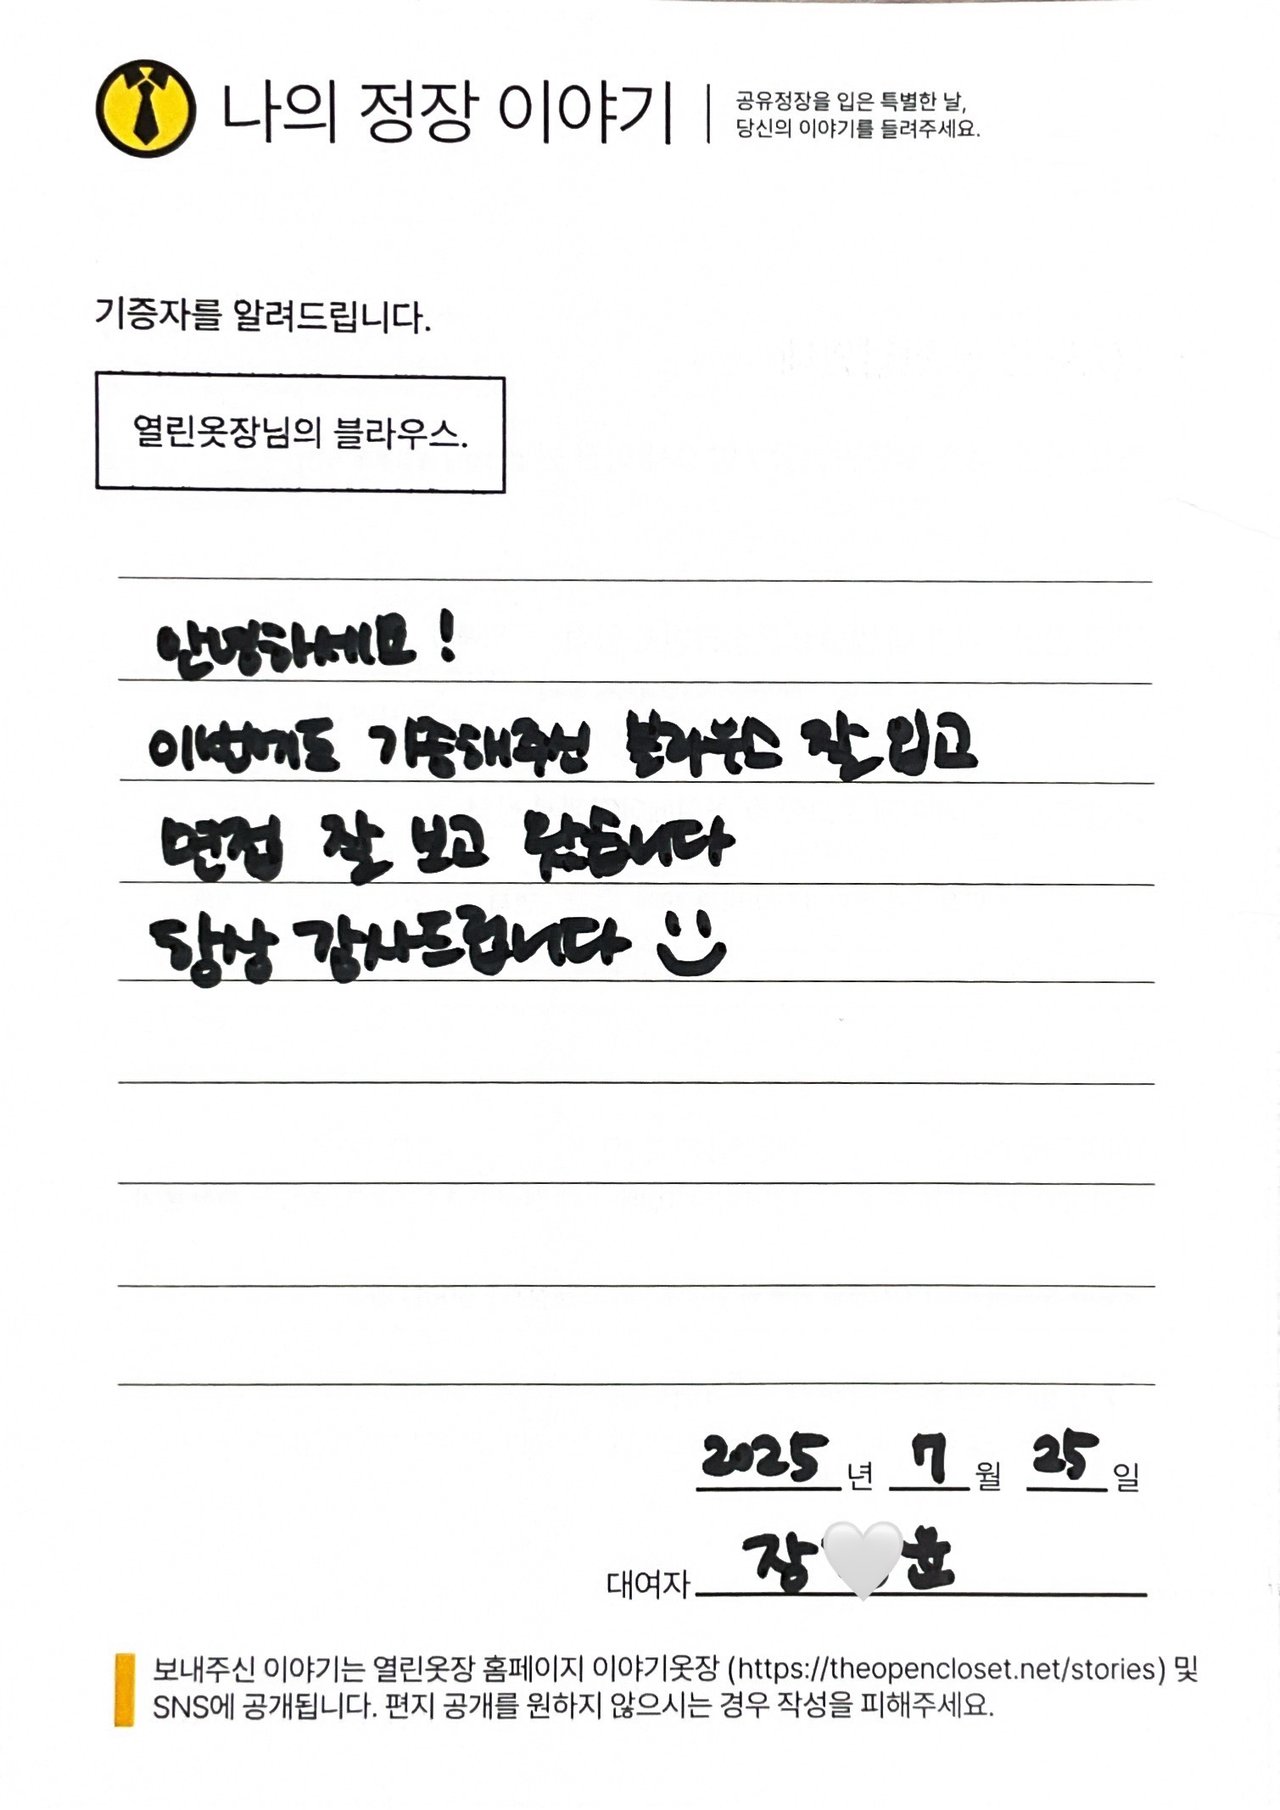 나의 정장 이야기
공유정장을 입은 특별한 날,
당신의 이야기를 들려주세요.
기증자를 알려드립니다.
열린옷장님의 블라우스.
안녕하세요!
이번에도 기증해주신 블라우스 잘 입고
면접 잘 보고 왔습니다
항상 감사드립니다
2025년 7월 25일
대여자 장 윤
보내주신 이야기는 열린옷장 홈페이지 이야기옷장 (https://theopencloset.net/stories) 및
SNS에 공개됩니다. 편지 공개를 원하지 않으시는 경우 작성을 피해주세요.